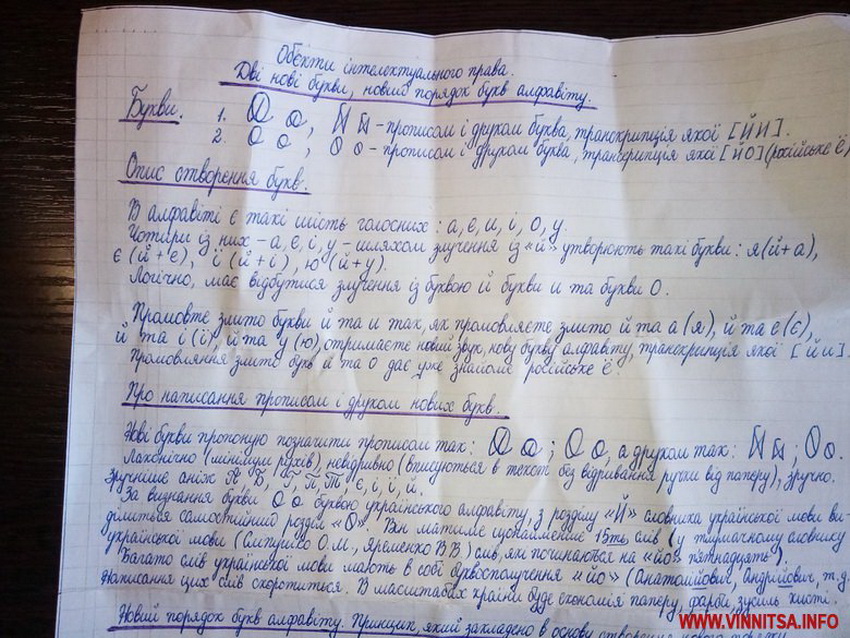 Об'єкти інтелектуального права.
Дві нові букви, новий порядок букв алфавіту.
Букви. 1. - прописом і друком буква, транскрипція якої [ЙИ].
2. О о, О о - прописом і друком буква, транскрипція якої [ЙО] (російське ё)
Опис створення букв.
В алфавіті є такі шість голосних: а, е, и, і, о, у.
Чотири із них - а, е, і, у - шляхом злучення із «й» утворюють такі букви: я (й+а),
є (й+е), ї (й+і), ю (й+у).
Логічно, має відбутися злучення із буквою й букви и та букви о.
Промовте злито букви й та и так, як промовляєте злито й та а (я), й та е (є),
й та і (ї), й та у (ю), отримаєте новий звук, нову букву алфавіту, транскрипція якої [йи].
Промовляння злито букв й та о дає уже знайоме російське ё.
Про написання прописом і друком нових букв.
Нові букви пропоную позначити прописом так: ; О о, а друком так: ; О о.
Лаконічно (мінімум рухів), невідривно (вписуються в текст без відривання ручки від паперу), зручно.
Зручніше аніж А, Б, Г, П, Т, є, і, ї, й.
За визнання букви О о буквою українського алфавіту, з розділу «Й» словника української мови ви-
ділиться самостійний розділ «О». Він матиме щонайменше 15ть слів (у тлумачному словнику
української мови (Сліпушко О.М., Яременко В.В) слів, які починаються на «йо» п'ятнадцять).
Багато слів української мови мають в собі буквосполучення «йо» (Анатолійович, Андрійович, т.д.
Написання цих слів скоротиться. В масштабах країни буде економія паперу, фарби, зусиль кисті.
Новий порядок букв алфавіту. Принцип, який закладено в основу створення нового порядку
WWW.VINNITSA.INFO